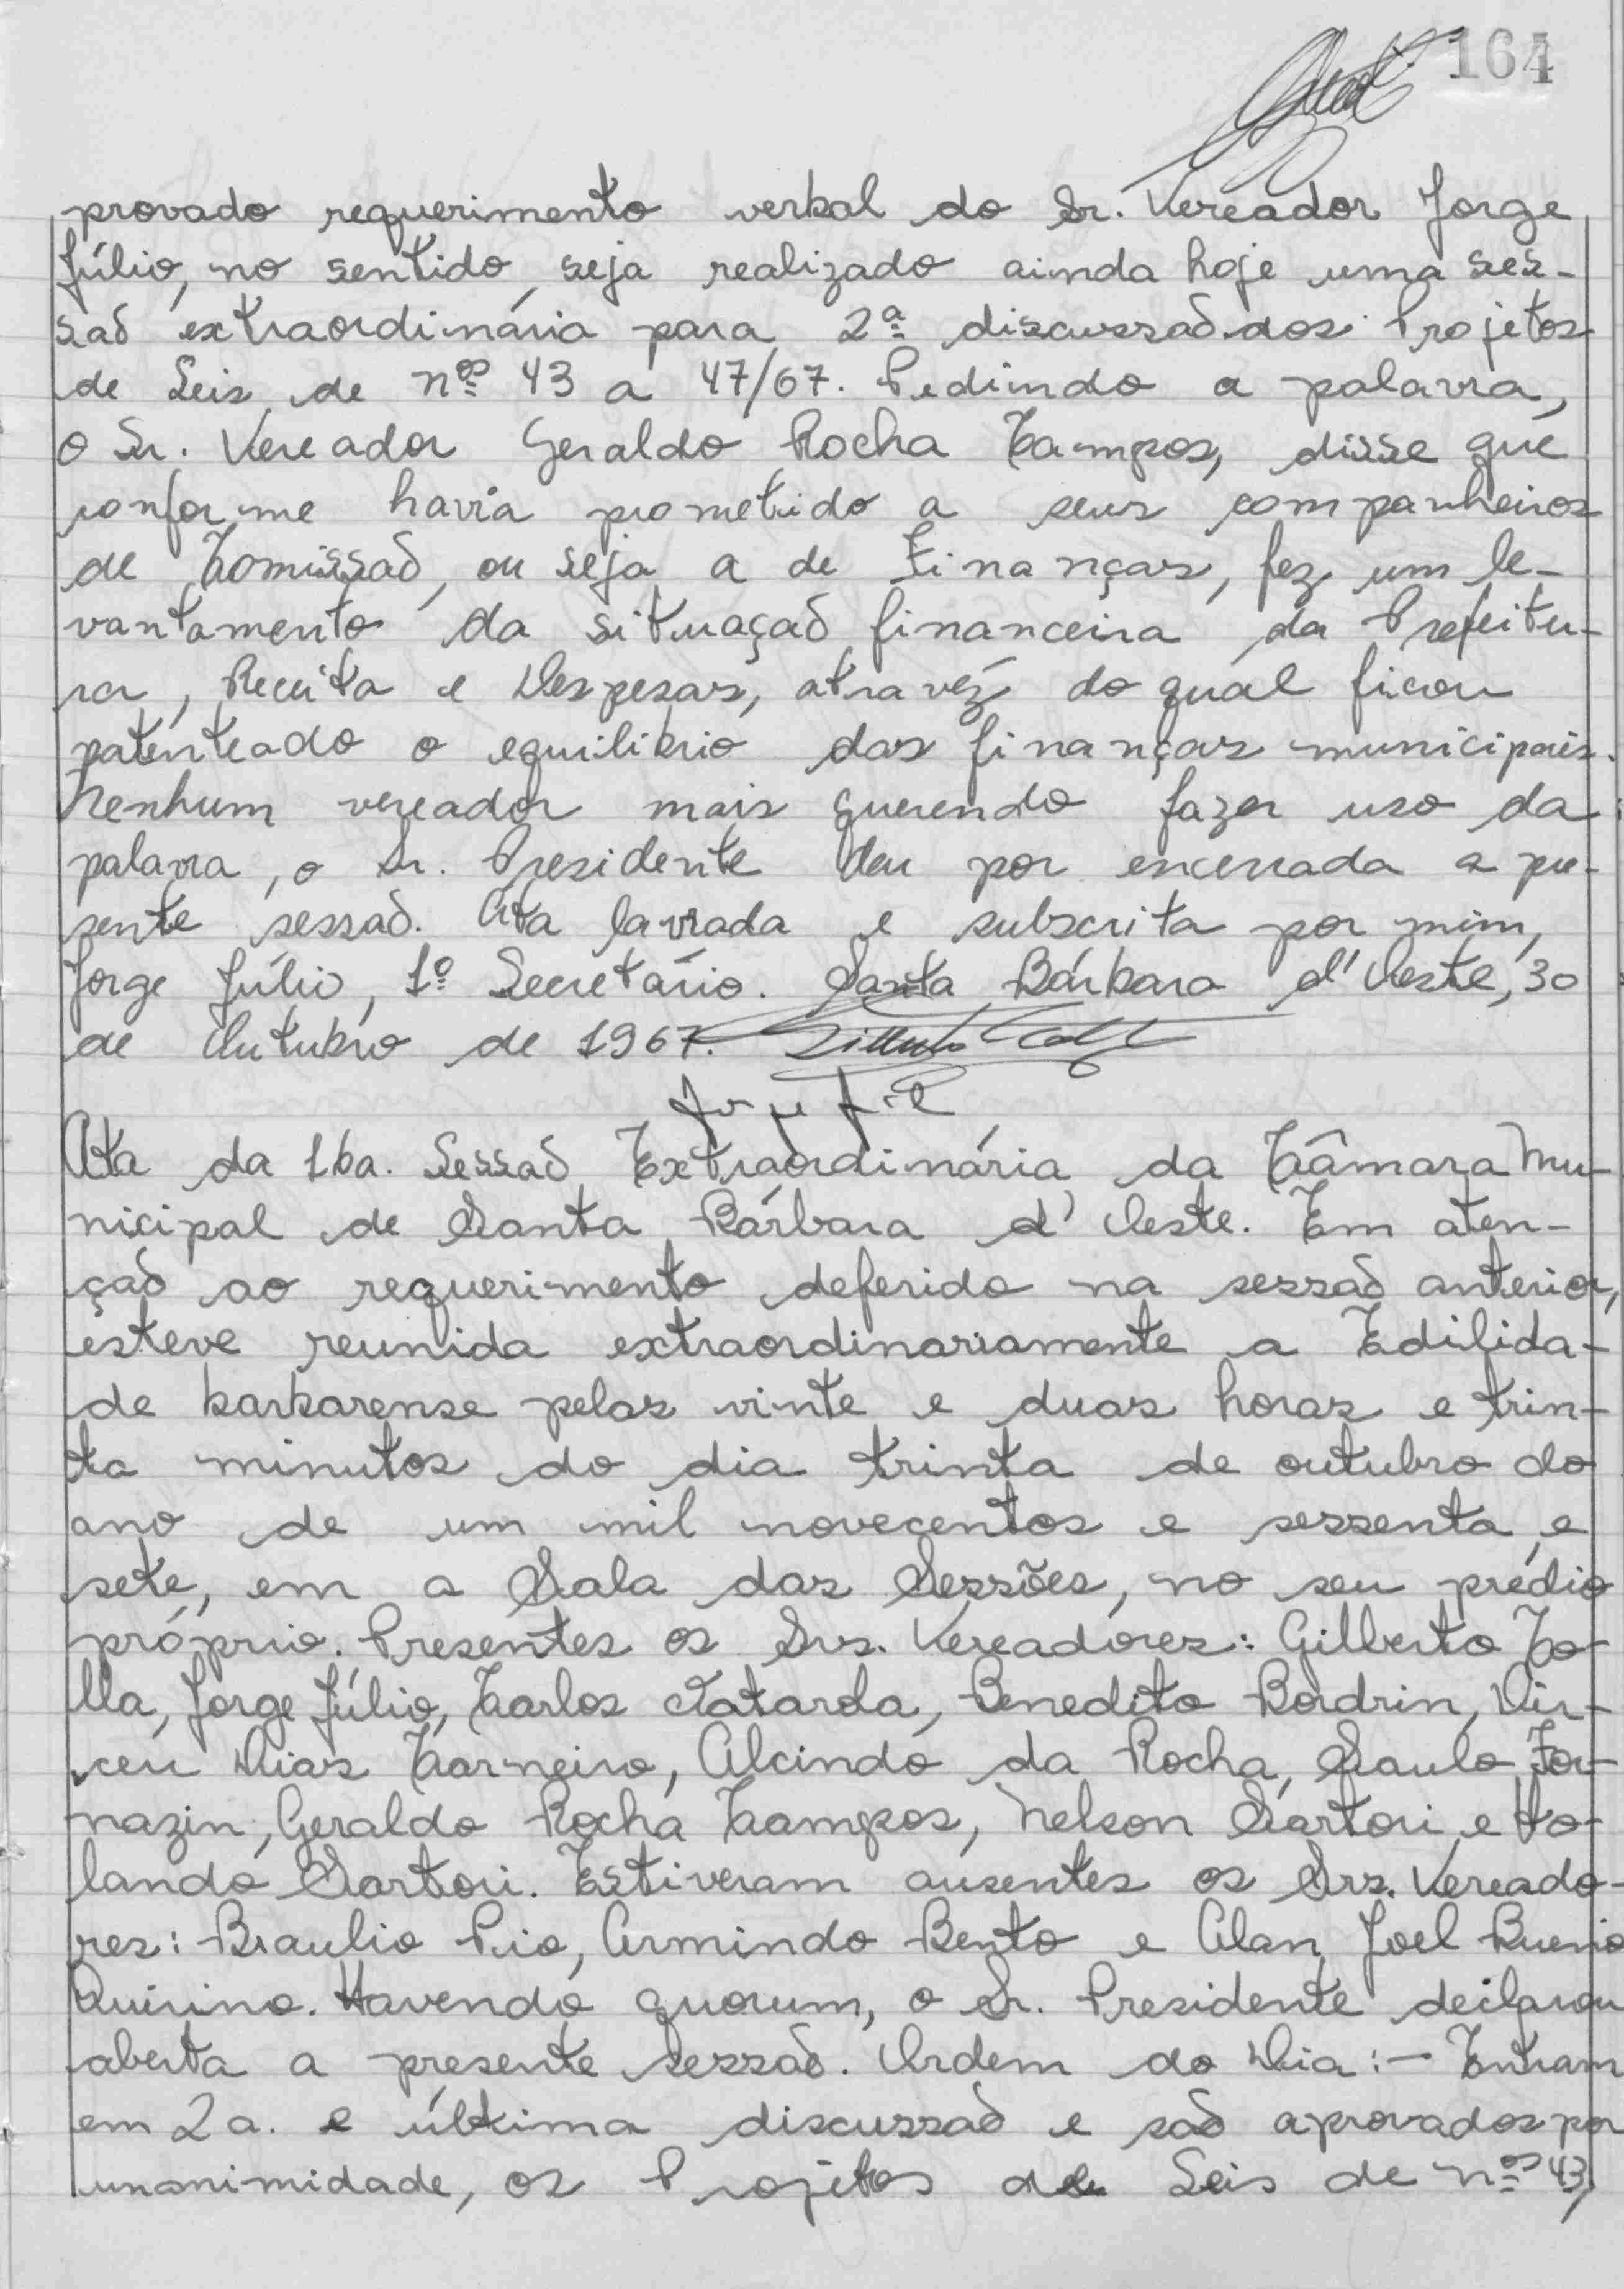 164
provado requerimento verbal do Sr. Vereador Jorge
Júlio, no sentido, seja realizado ainda hoje uma ses-
são extraordinária para 2ª discussão dos Projetos
de Leis, de nºs 43 a 47/67. Pedindo a palavra,
o Sr. Vereador Geraldo Rocha Campos, disse que
conforme havia prometido a seus companheiros
de Comissão, ou seja, a de Finanças, fez um le-
vantamento da situação financeira da Prefeitu-
ra, Receita e Despesas, atravéz do qual ficou
patenteado o equilibrio das finanças municipais.
Nenhum vereador mais querendo fazer uso da
palavra, o Sr. Presidente deu por encerrada a pre-
sente sessão. Ata lavrada e subscrita por mim,
Jorge Júlio, 1º Secretário. Santa Bárbara d'Oeste, 30
de Outubro de 1967.
Ata da 16a. Sessão Extraordinária da Câmara Mu-
nicipal de Santa Bárbara d'Oeste. Em aten-
ção ao requerimento deferido na sessão anterior,
esteve reunida extraordinariamente a Edilida-
de barbarense pelas vinte e duas horas e trin-
ta minutos do dia trinta de outubro do
ano de um mil novecentos e sessenta e
sete, em a Sala das Sessões, no seu prédio
próprio. Presentes os Srs. Vereadores: Gilberto Co-
lla, Jorge Júlio, Carlos Catarda, Benedito Bordrin, Dir-
ceu Dias Carneiro, Alcindo da Rocha, Saulo For-
nazin, Geraldo Rocha Campos, Nelson Sartori e
lando Sartori. Estiveram ausentes os Srs. Vereado-
res: Braulio Pio, Armindo Bento e Alan Joel Bueno
Quirino. Havendo quorum, o Sr. Presidente declarou
aberta a presente sessão. Ordem do Dia:- Entram
em 2a. e última discussão e são aprovados por
unanimidade, os Projetos de Leis de nºs 43,